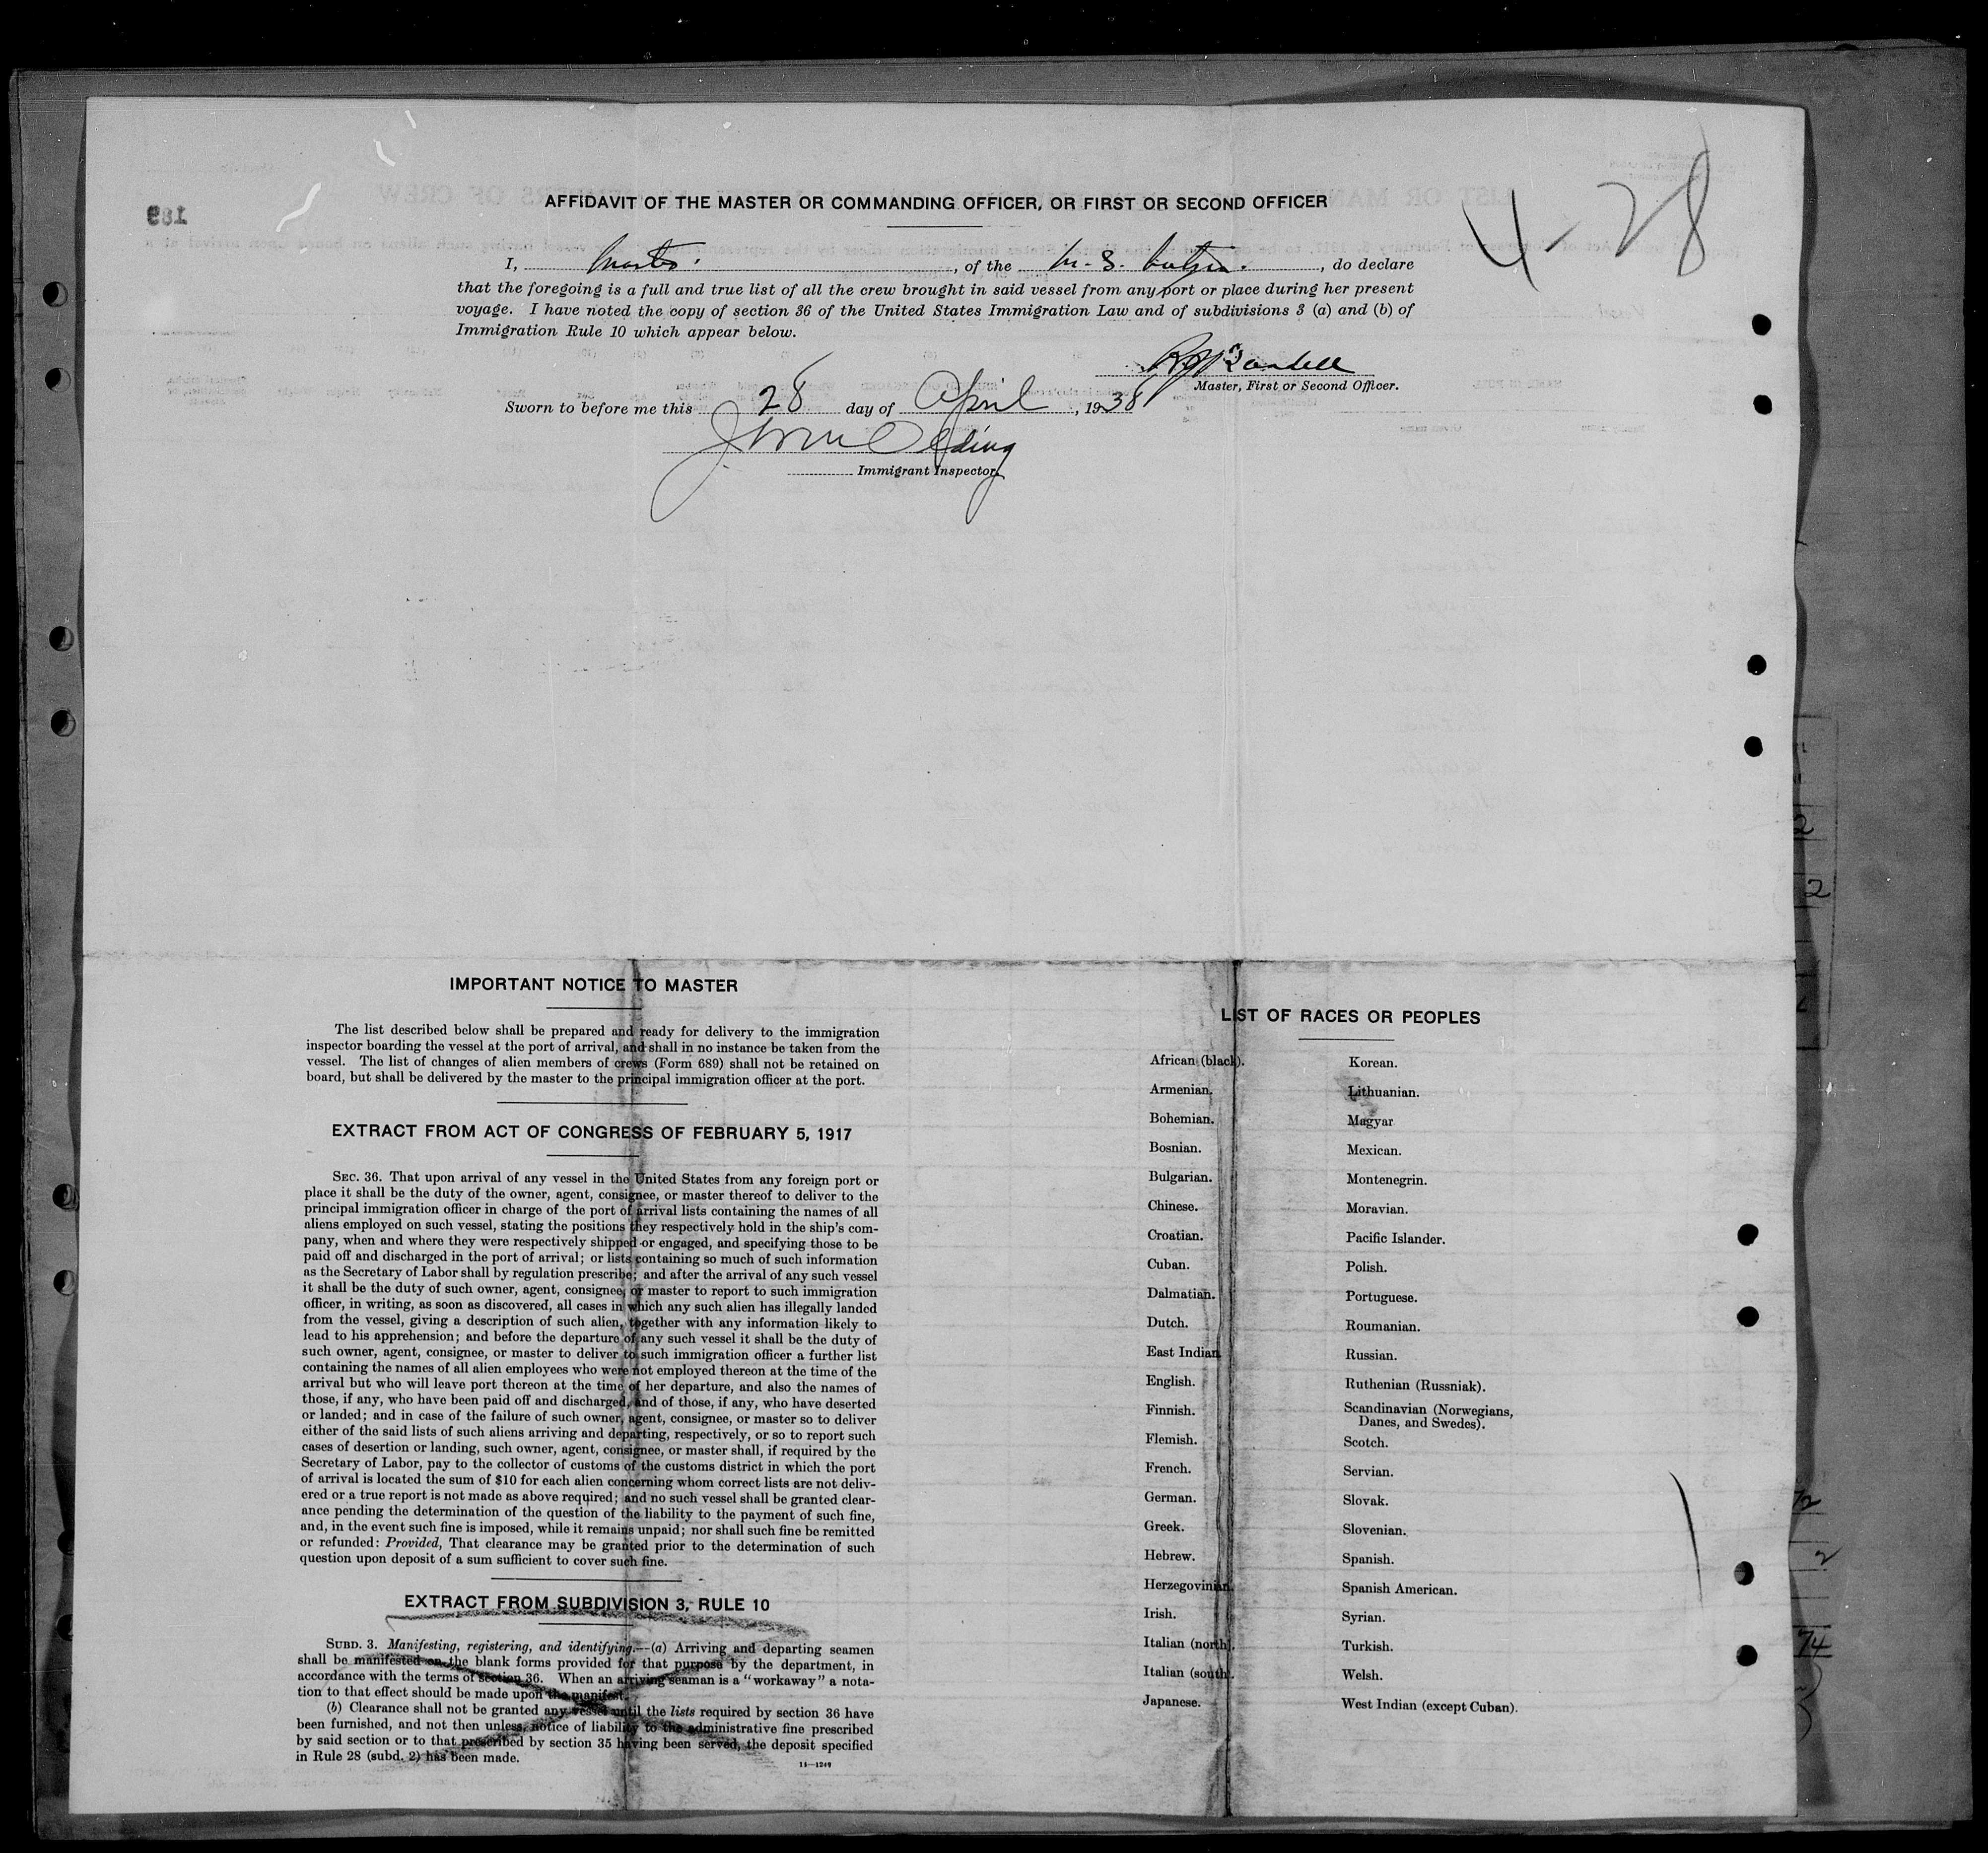 4-28
189
AFFIDAVIT OF THE MASTER OR COMMANDING OFFICER, OR FIRST OR SECOND OFFICER
I, Master. , of the M. S. , do declare
that the foregoing is a full and true list of all the crew brought in said vessel from any port or place during her present
voyage. I have noted the copy of section 36 of the United States Immigration Law and of subdivisions 3 (a) and (b) of
Immigration Rule 10 which appear below.
Master, First or Second Officer.
Sworn to before me this 28 day of April , 1938
Immigrant Inspector.
IMPORTANT NOTICE TO MASTER
The list described below shall be prepared and ready for delivery to the immigration
inspector boarding the vessel at the port of arrival, and shall in no instance be taken from the
vessel. The list of changes of alien members of crews (Form 689) shall not be retained on
board, but shall be delivered by the master to the principal immigration officer at the port.
EXTRACT FROM ACT OF CONGRESS OF FEBRUARY 5, 1917
SEC. 36. That upon arrival of any vessel in the United States from any foreign port or
place it shall be the duty of the owner, agent, consignee, or master thereof to deliver to the
principal immigration officer in charge of the port of arrival lists containing the names of all
aliens employed on such vessel, stating the positions they respectively hold in the ship's com-
pany, when and where they were respectively shipped or engaged, and specifying those to be
paid off and discharged in the port of arrival; or lists containing so much of such information
as the Secretary of Labor shall by regulation prescribe; and after the arrival of any such vessel
it shall be the duty of such owner, agent, consignee, or master to report to such immigration
officer, in writing, as soon as discovered, all cases in which any such alien has illegally landed
from the vessel, giving a description of such alien, together with any information likely to
lead to his apprehension; and before the departure of any such vessel it shall be the duty of
such owner, agent, consignee, or master to deliver to such immigration officer a further list
containing the names of all alien employees who were not employed thereon at the time of the
arrival but who will leave port thereon at the time of her departure, and also the names of
those, if any, who have been paid off and discharged, and of those, if any, who have deserted
or landed; and in case of the failure of such owner, agent, consignee, or master so to deliver
either of the said lists of such aliens arriving and departing, respectively, or so to report such
cases of desertion or landing, such owner, agent, consignee, or master shall, if required by the
Secretary of Labor, pay to the collector of customs of the customs district in which the port
of arrival is located the sum of $10 for each alien concerning whom correct lists are not deliv-
ered or a true report is not made as above required; and no such vessel shall be granted clear-
ance pending the determination of the question of the liability to the payment of such fine,
and, in the event such fine is imposed, while it remains unpaid; nor shall such fine be remitted
or refunded: Provided, That clearance may be granted prior to the determination of such
question upon deposit of a sum sufficient to cover such fine.
EXTRACT FROM SUBDIVISION 3, RULE 10
SUBD. 3. Manifesting, registering, and identifying.—(a) Arriving and departing seamen
shall be manifested on the blank forms provided for that purpose by the department, in
accordance with the terms of section 36. When an arriving seaman is a "workaway" a nota-
tion to that effect should be made upon the manifest.
(b) Clearance shall not be granted any vessel until the lists required by section 36 have
been furnished, and not then unless, notice of liability to the administrative fine prescribed
by said section or to that prescribed by section 35 having been served, the deposit specified
in Rule 28 (subd. 2) has been made.
14—1240
LIST OF RACES OR PEOPLES
African (black).
Armenian.
Bohemian.
Bosnian.
Bulgarian.
Chinese.
Croatian.
Cuban.
Dalmatian.
Dutch.
East Indian.
English.
Finnish.
Flemish.
French.
German.
Greek.
Hebrew.
Herzegovinian.
Irish.
Italian (north).
Italian (south).
Japanese.
Korean.
Lithuanian.
Magyar
Mexican.
Montenegrin.
Moravian.
Pacific Islander.
Polish.
Portuguese.
Roumanian.
Russian.
Ruthenian (Russniak).
Scandinavian (Norwegians,
Danes, and Swedes).
Scotch.
Servian.
Slovak.
Slovenian.
Spanish.
Spanish American.
Syrian.
Turkish.
Welsh.
West Indian (except Cuban).
2
74